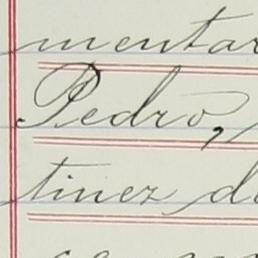 mentar
Pedro,
tinez d